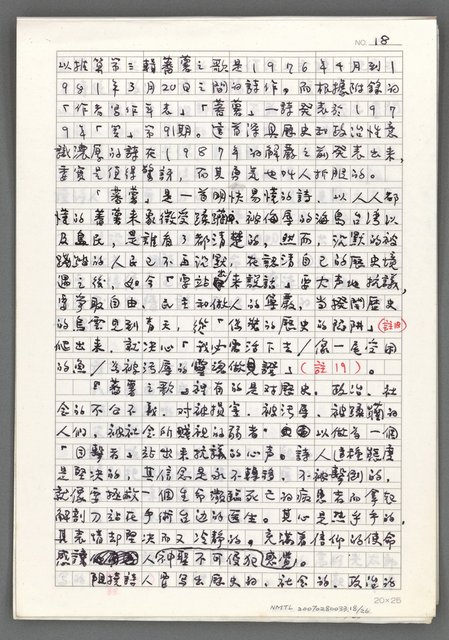 NO. 18
以推算第三輯蕃薯之歌是1976年4月到1
981年3月20日之間的詩作。而根據附錄的
「作者寫作年表」「蕃薯」一詩發表於197
9年「笠」第91期。這首深具歷史和政治性意
識濃厚的詩在1987年的解嚴之前發表出來,
委實是值得驚訝,而其勇氣也叫人折服的。
「蕃薯」是一首明快易懂的詩,以人人都
懂的蕃薯來象徵受蹂躪、被侮辱的海島台灣以
及島民,是誰看了都清楚的,然而,沈默的被
蹂躪的人民已不再沈默,在認清自己的歷史境
遇之後,如今「要站出來說話」要大聲地抗議,
要爭取自由、民主和做人的尊嚴,當撥開歷史
的烏雲見到青天,從「偽裝的歷史的陷阱」(註18)
爬出來,就決心「我必需活下去/像一尾
的魚/為被污辱的靈魂做見證」(註19)。
「蕃薯之歌」裡有的是對歷史、政治、社
會的不公不義,對被損害、被污辱、被蹂躪的
人們,被社會所賤視的弱者,以做為一個
「目擊者」站出來抗議的心聲。詩人這種態度
是堅決的,其信念是永不轉移,不被擊倒的,
就像要拯救一個生命瀕臨死亡的病患者而拿起
解剖刀站在手術台邊的醫生。其心是熱乎乎的,
其表情却堅決而又冷靜的。充滿著信仰的使命
感讓人神聖不可侵犯感覺。
詩人曾寫出歷史的、社會的、政治的
20×25
NMTL 20070280033:18/26